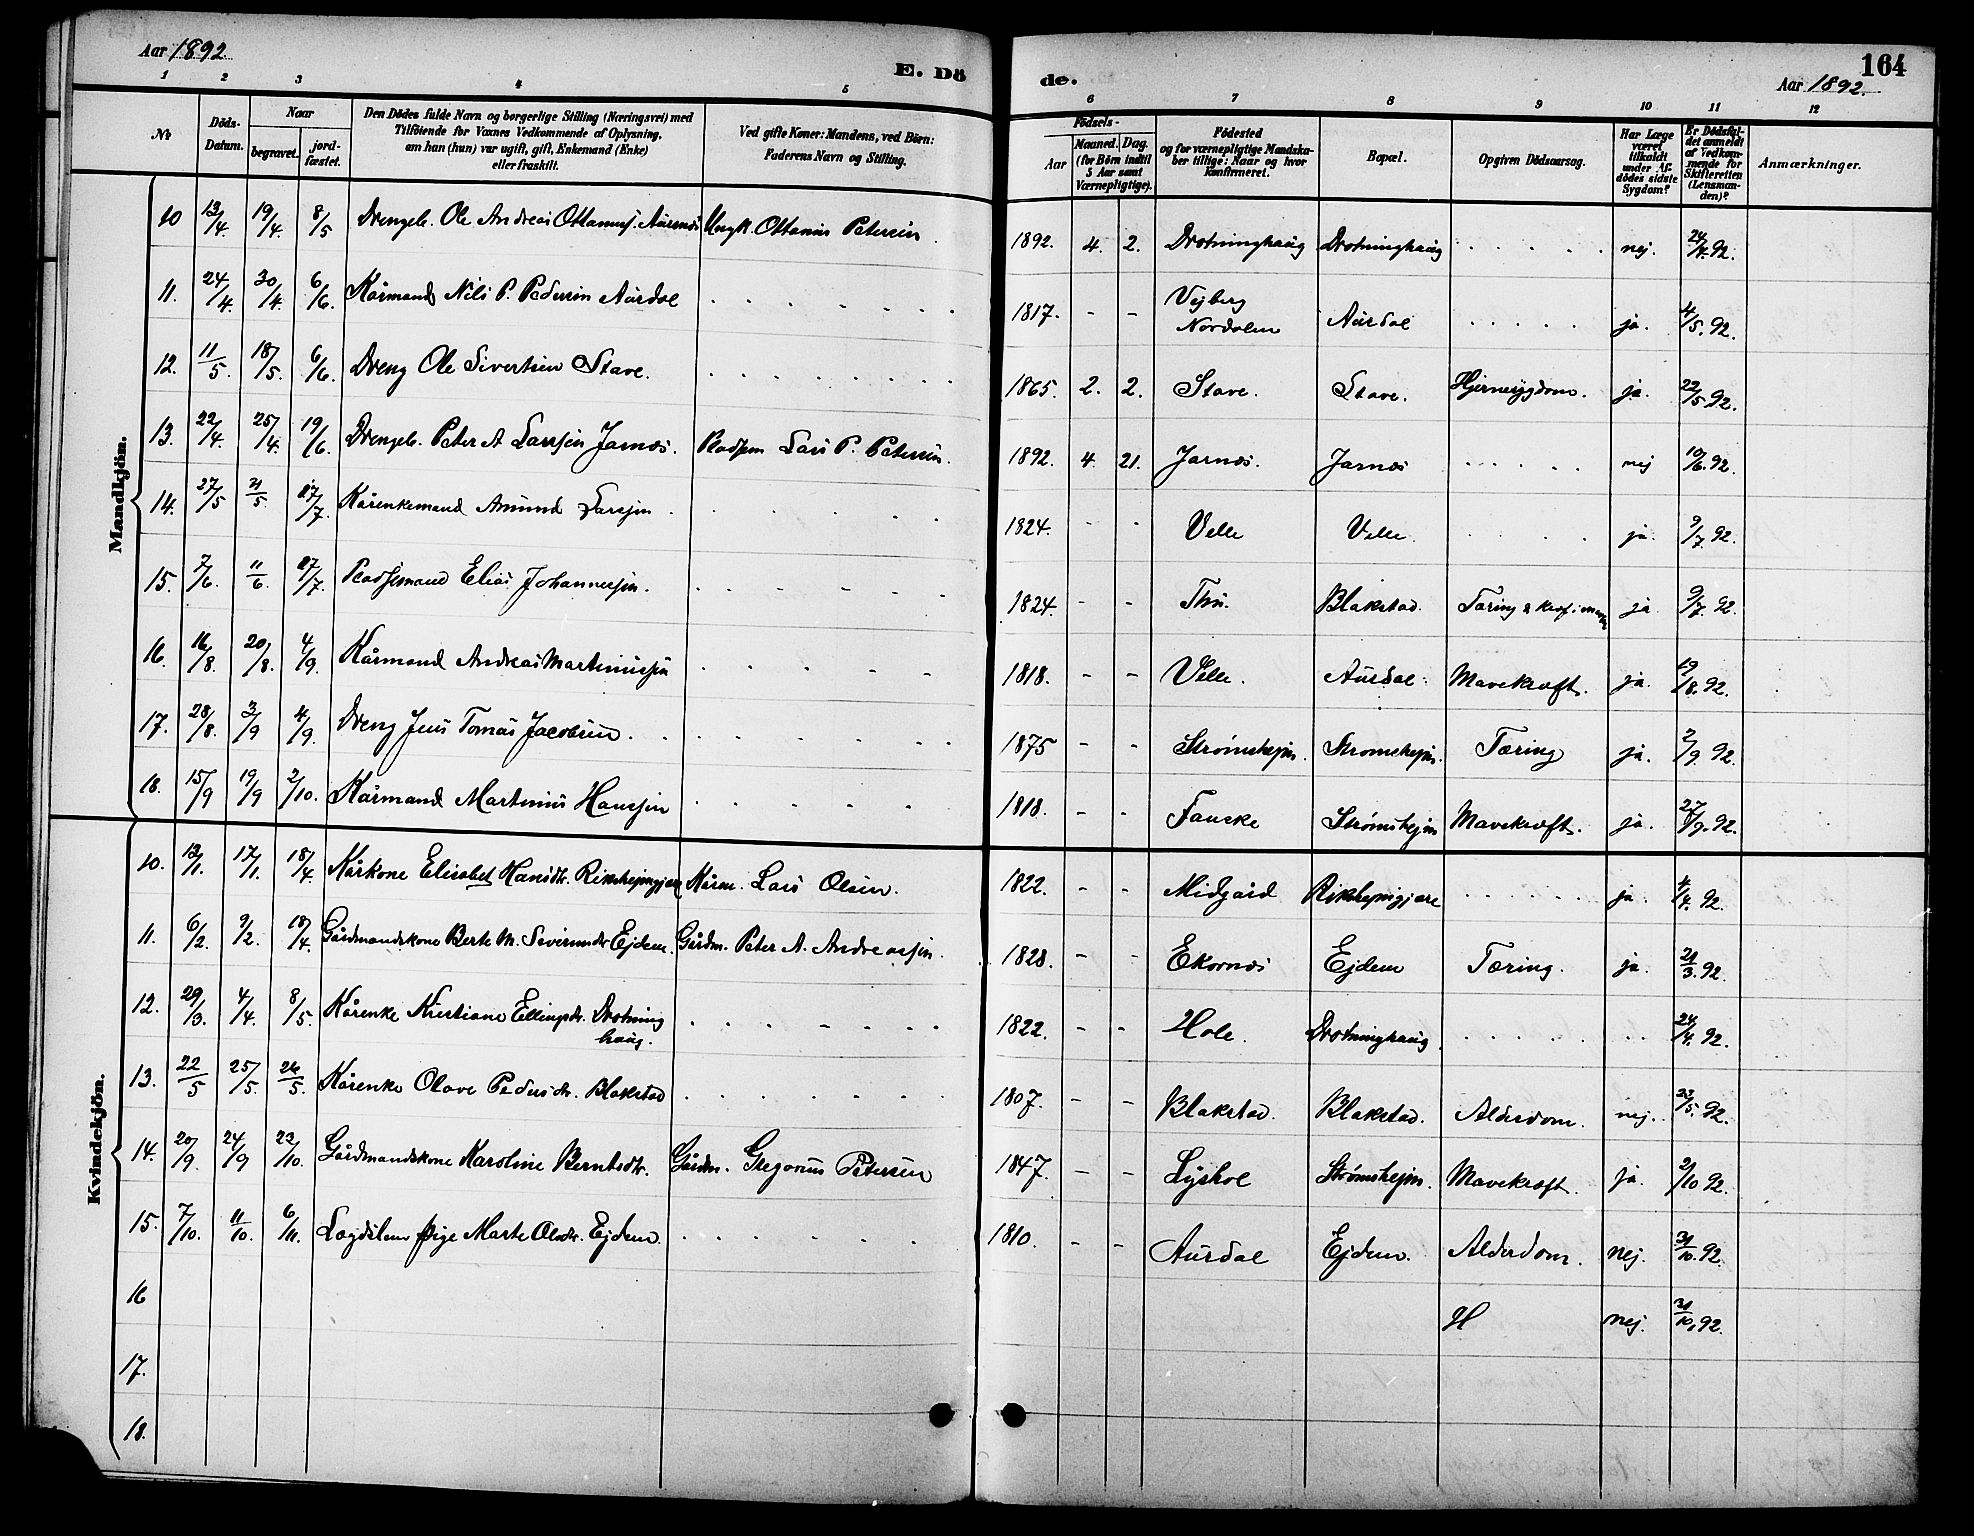 Aar 1892.
E. Dö
de.
164
Aar 1892.
1 2 3 4 5 6 7 8 9 10 11 12
No
Döds-Datum.
Naar
begravet.
jord-fæstet.
Den Dödes fulde Navn og borgerlige Stilling (Næringsvei) med
Tilföiende for Voxnes Vedkommende af Oplysning,
om han (hun) var ugift, gift, Enkemand (Enke)
eller fraskilt.
Ved gifte Koner: Mandens, ved Börn:
Faderens Navn og Stilling.
Födsels-
Aar
Maaned. Dag.
(for Börn indtil
5 Aar samt
Værnepligtige).
Födested
og for værnepligtige Mandska-
ber tillige: Naar og hvor
konfirmeret.
Bopæl.
Opgiven Dödsaarsag.
Har Læge
været
tilkaldt
under Af-
dödes sidste
Sygdom?
Er Dödsfal-
det anmeldt
af Vedkom-
mende for
Skifteretten
(Lensman-
den)?
Anmærkninger.
Mandkjön.
10 13/4. 19/4. 8/5 Drengeb. Ole Andreas Aurnes Ungk. Ottanius Petersen 1892. 4. 2. Drotninghaug Drotninghaug nej. 24/4. 92.
11. 24/4. 30/4. 6/6. Kårmand Nils P. Pedersen Aurdal 1817. - - Vejberg Nordalen Aurdal ja. 4/5. 92.
12. 11/5. 18/5. 6/6. Dreng Ole Sivertsen Stave. 1865. 2. 2. Stave. Stave. Hjernesygdom. ja. 22/5. 92.
13. 22/4. 25/4. 19/6. Drengeb. Peter A Larssen Jarnes. Pladsm Lars P. Petersen. 1892. 4. 21. Jarnes. Jarnes nej 19/6. 92.
14. 27/5 31/5. 17/7. Kårenkemand Amund Larssen 1824. - - Velle Velle. ja. 9/7. 92.
15. 7/6. 11/6. 17/7. Pladsemand Elias Johannessen. 1824. - - Thu. Blakstad. Tæring ja 9/7. 92.
16. 16/8. 20/8. 4/9. Kårmand Andreas Martinussen 1818. - - Velle. Aurdal. Mavekræft. ja. 19/8. 92.
17. 28/8. 3/9 4/9. Dreng Jens Tomas Jacobsen. 1875 - - Strømshejm. Strømshejm. Tæring ja. 2/9. 92.
18. 15/9 19/9 2/10. Kårmand Martinus Hanssen 1818. - - Fauske Strømshejm Mavekræft. ja. 27/9. 92.
Kvindekjön.
10. 13/1. 17/1. 18/4. Kårkone Elisabet Hansdtr. Rikshejmgjære Kårm. Lars Olsen. 1822. - - Midgård Rikshejmgjære ja. 1/4. 92.
11. 6/2. 9/2. 18/4 Gårdmandskone Berte M. Ejdem. Gårdm. Peter A. Andreassen. 1828. - - Ekornes Ejdem Tæring. ja. 21/3. 92
12. 29/3. 4/4. 8/5. Kårenke Kristiane Ellingsdr. Drotning
haug. 1822. - - Hole. Drotninghaug. 24/4. 92.
13. 22/5 25/5. 26/5. Kårenke Olave Pedersdtr. Blakstad 1807. - - Blakstad. Blakstad. Alderdom. nej. 23/5. 92.
14. 20/9. 24/9 23/10. Gårdmandskone Karoline Berntsdtr. Gårdm. Gregorius Petersen 1847. - - Lyshol Strømshejm. Mavekræft. ja. 2/10 92.
15. 7/10. 11/10. 6/11. Lægdslem pige Marte Olsdtr. Ejdem. 1810. - - Aurdal Ejdem. Alderdom. nej. 31/10. 92.
16 H nej. 31/10. 92.
17.
18.